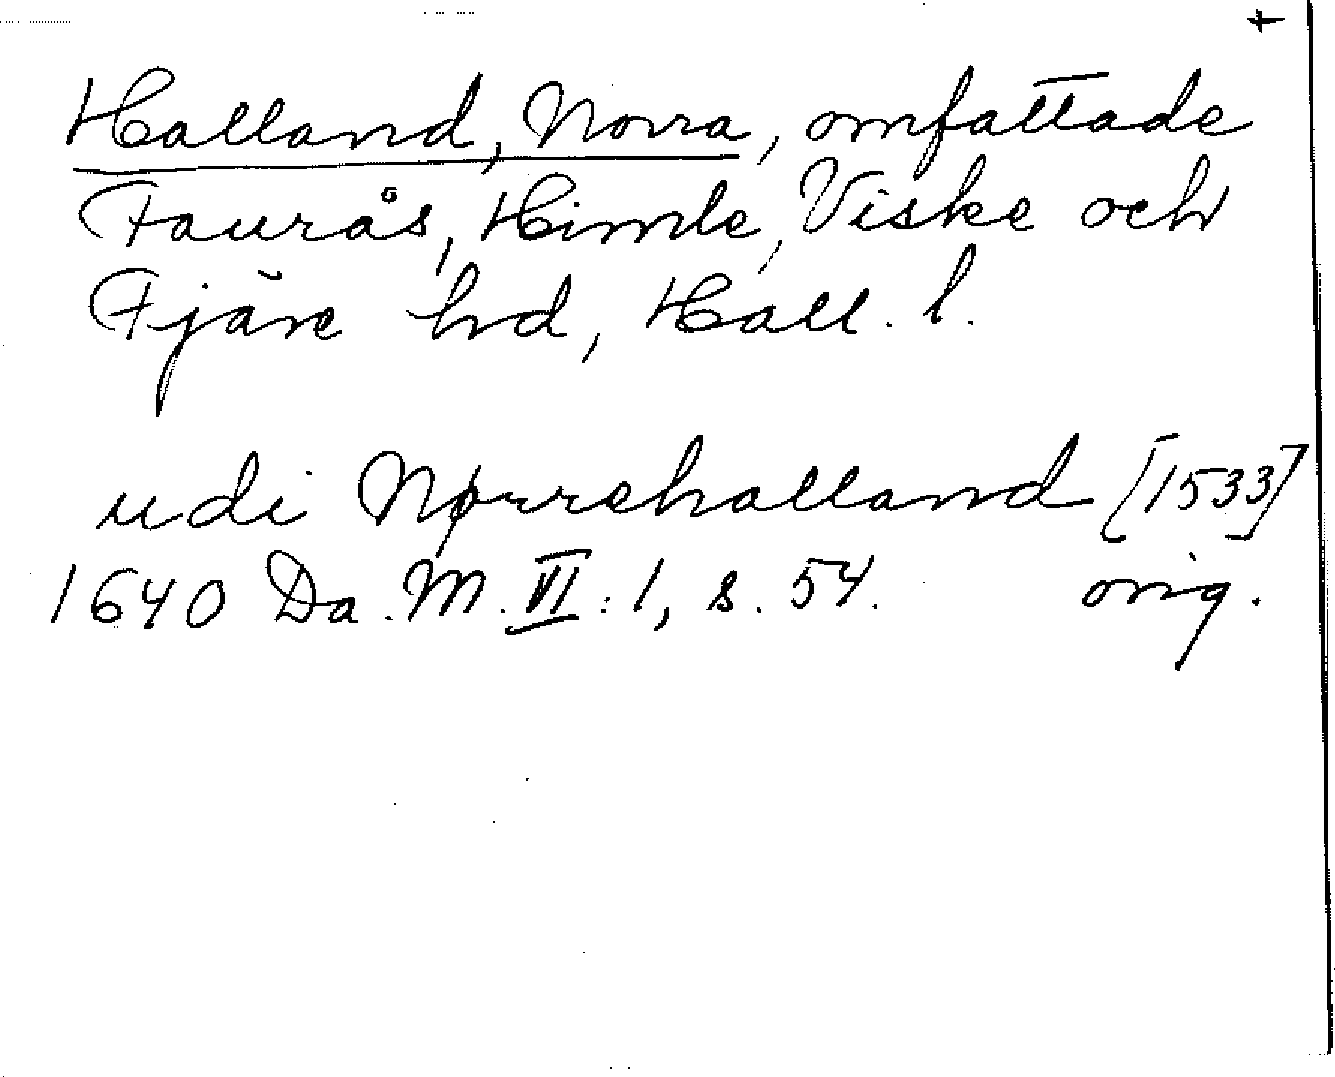 +
Halland, Norra, omfattade
Faurås, Himle, Viske och
Fjäre hd, Hall. l.
udi Nørrehalland [1533]
1640 Da. M. VI: 1, s. 54. orig.